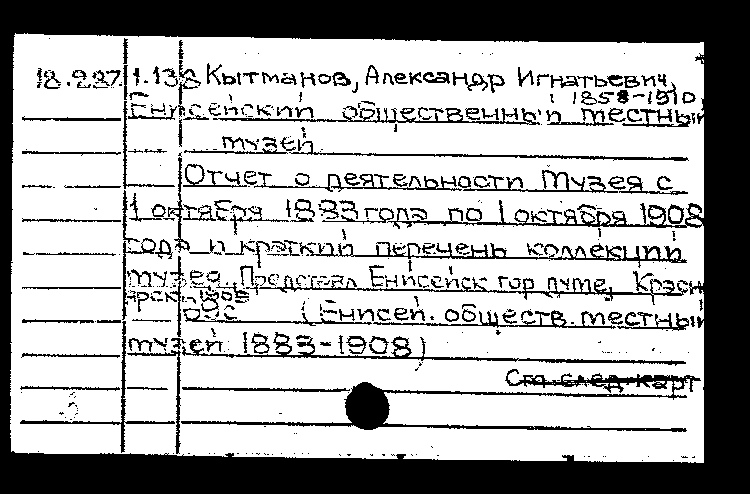 18.9.227.1.138 Кытманов, Александр Игнатьевич,
1858-1910,
Енисейский общественный местный
музей
Отчет о деятельности Музея с
1 октября 1883 года по 1 октября 1908
года и краткий перечень коллекции
музея. Представл Енисейск гор думе, Красн
ярск, 1909
(Енисей. обществ. местный
музей 1883-1908)
См. след. карт.